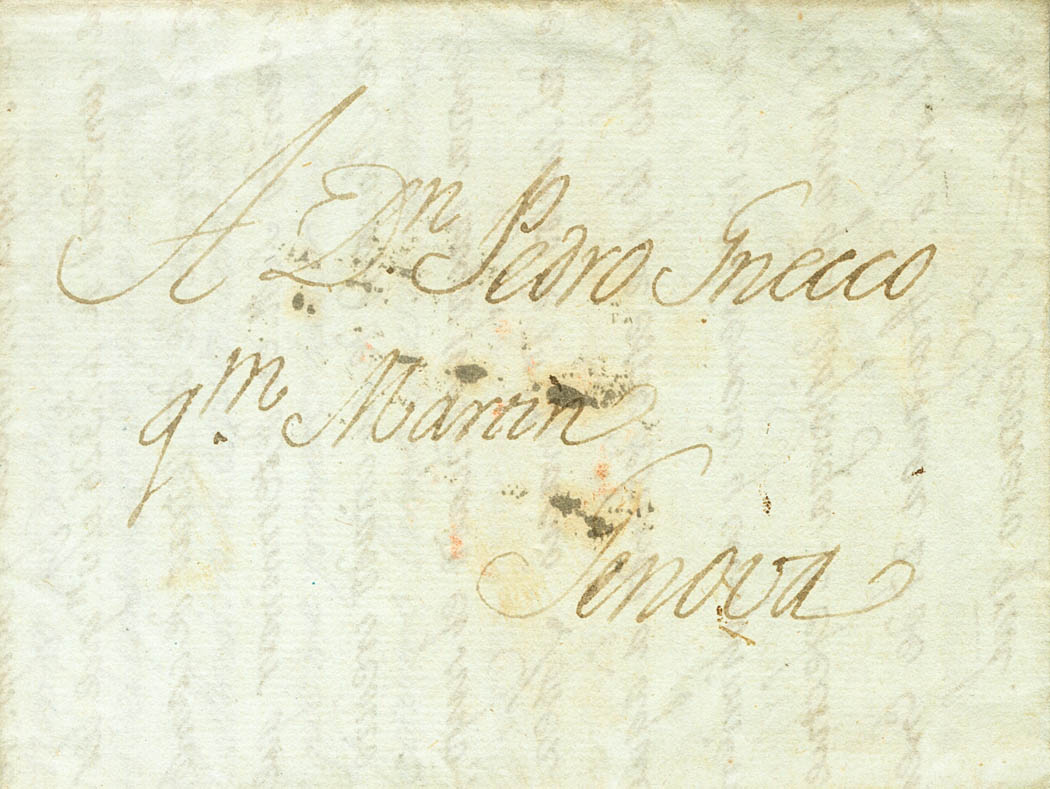 A Dn. Pedro Gnecco
qm. Martin
Genova